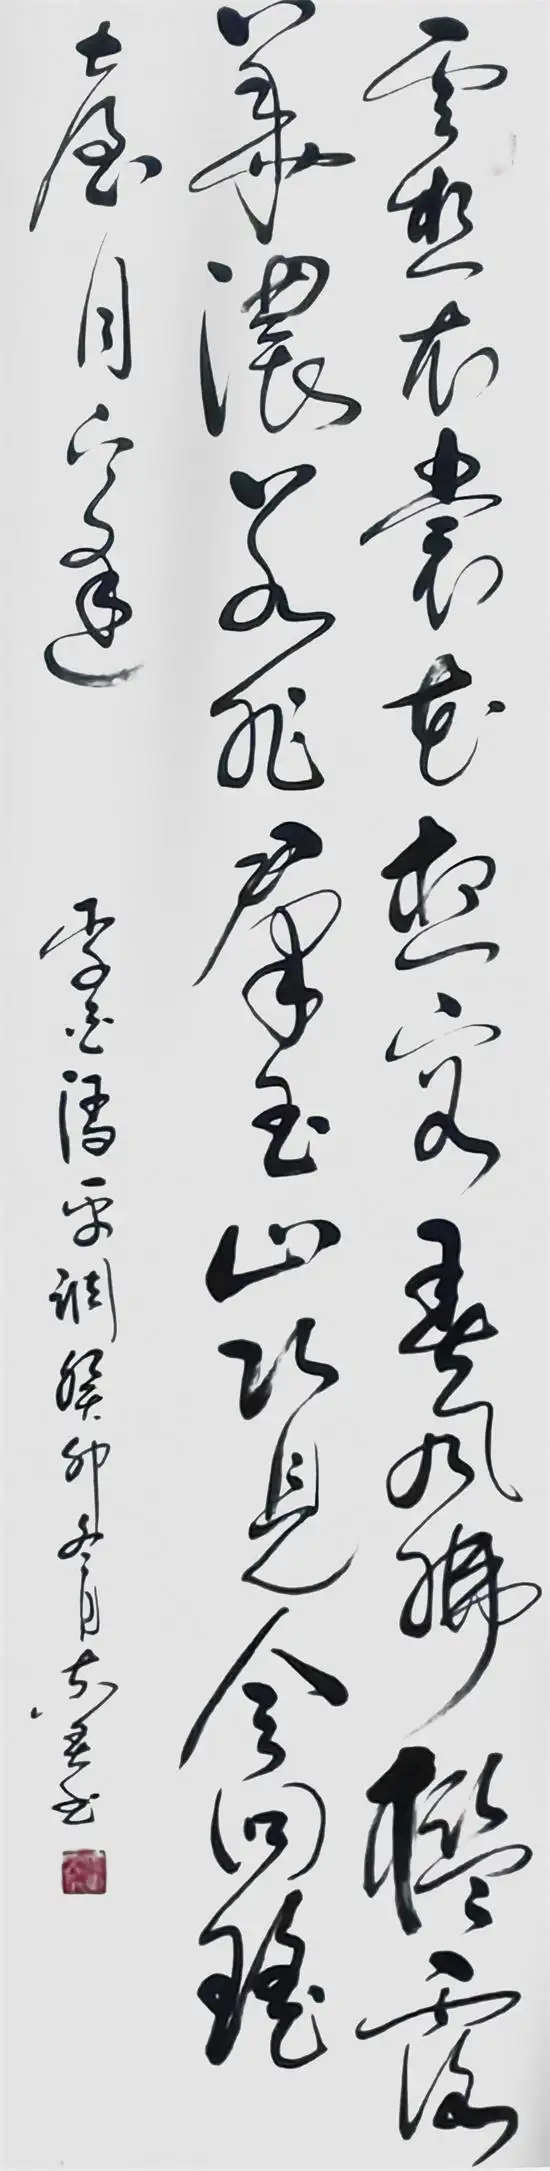 雲想衣裳花想容春風拂檻露
華濃若非群玉山頭見會向瑤
臺月下逢
李白清平調癸卯冬月